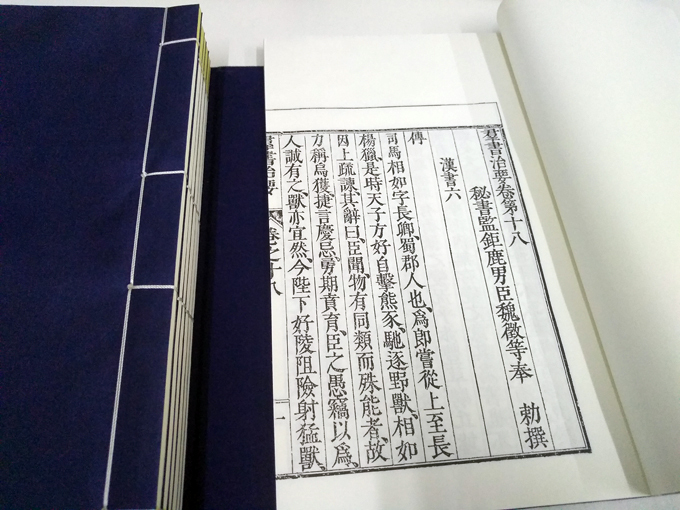 群書治要卷第十八
秘書監鉅鹿男臣魏徵等奉　勑撰
漢書六
傳
司馬相如字長卿、蜀郡人也、爲郎嘗從上至長
楊獵、是時天子方好自擊熊豕、馳逐野獸、相如
因上疏諫、其辭曰、臣聞、物有同類而殊能者、故
力稱烏獲、捷言慶忌、勇期賁育、臣之愚竊以爲、
人誠有之、獸亦宜然、今陛下好陵阻險射猛獸、
羣書治要
卷之十八
一